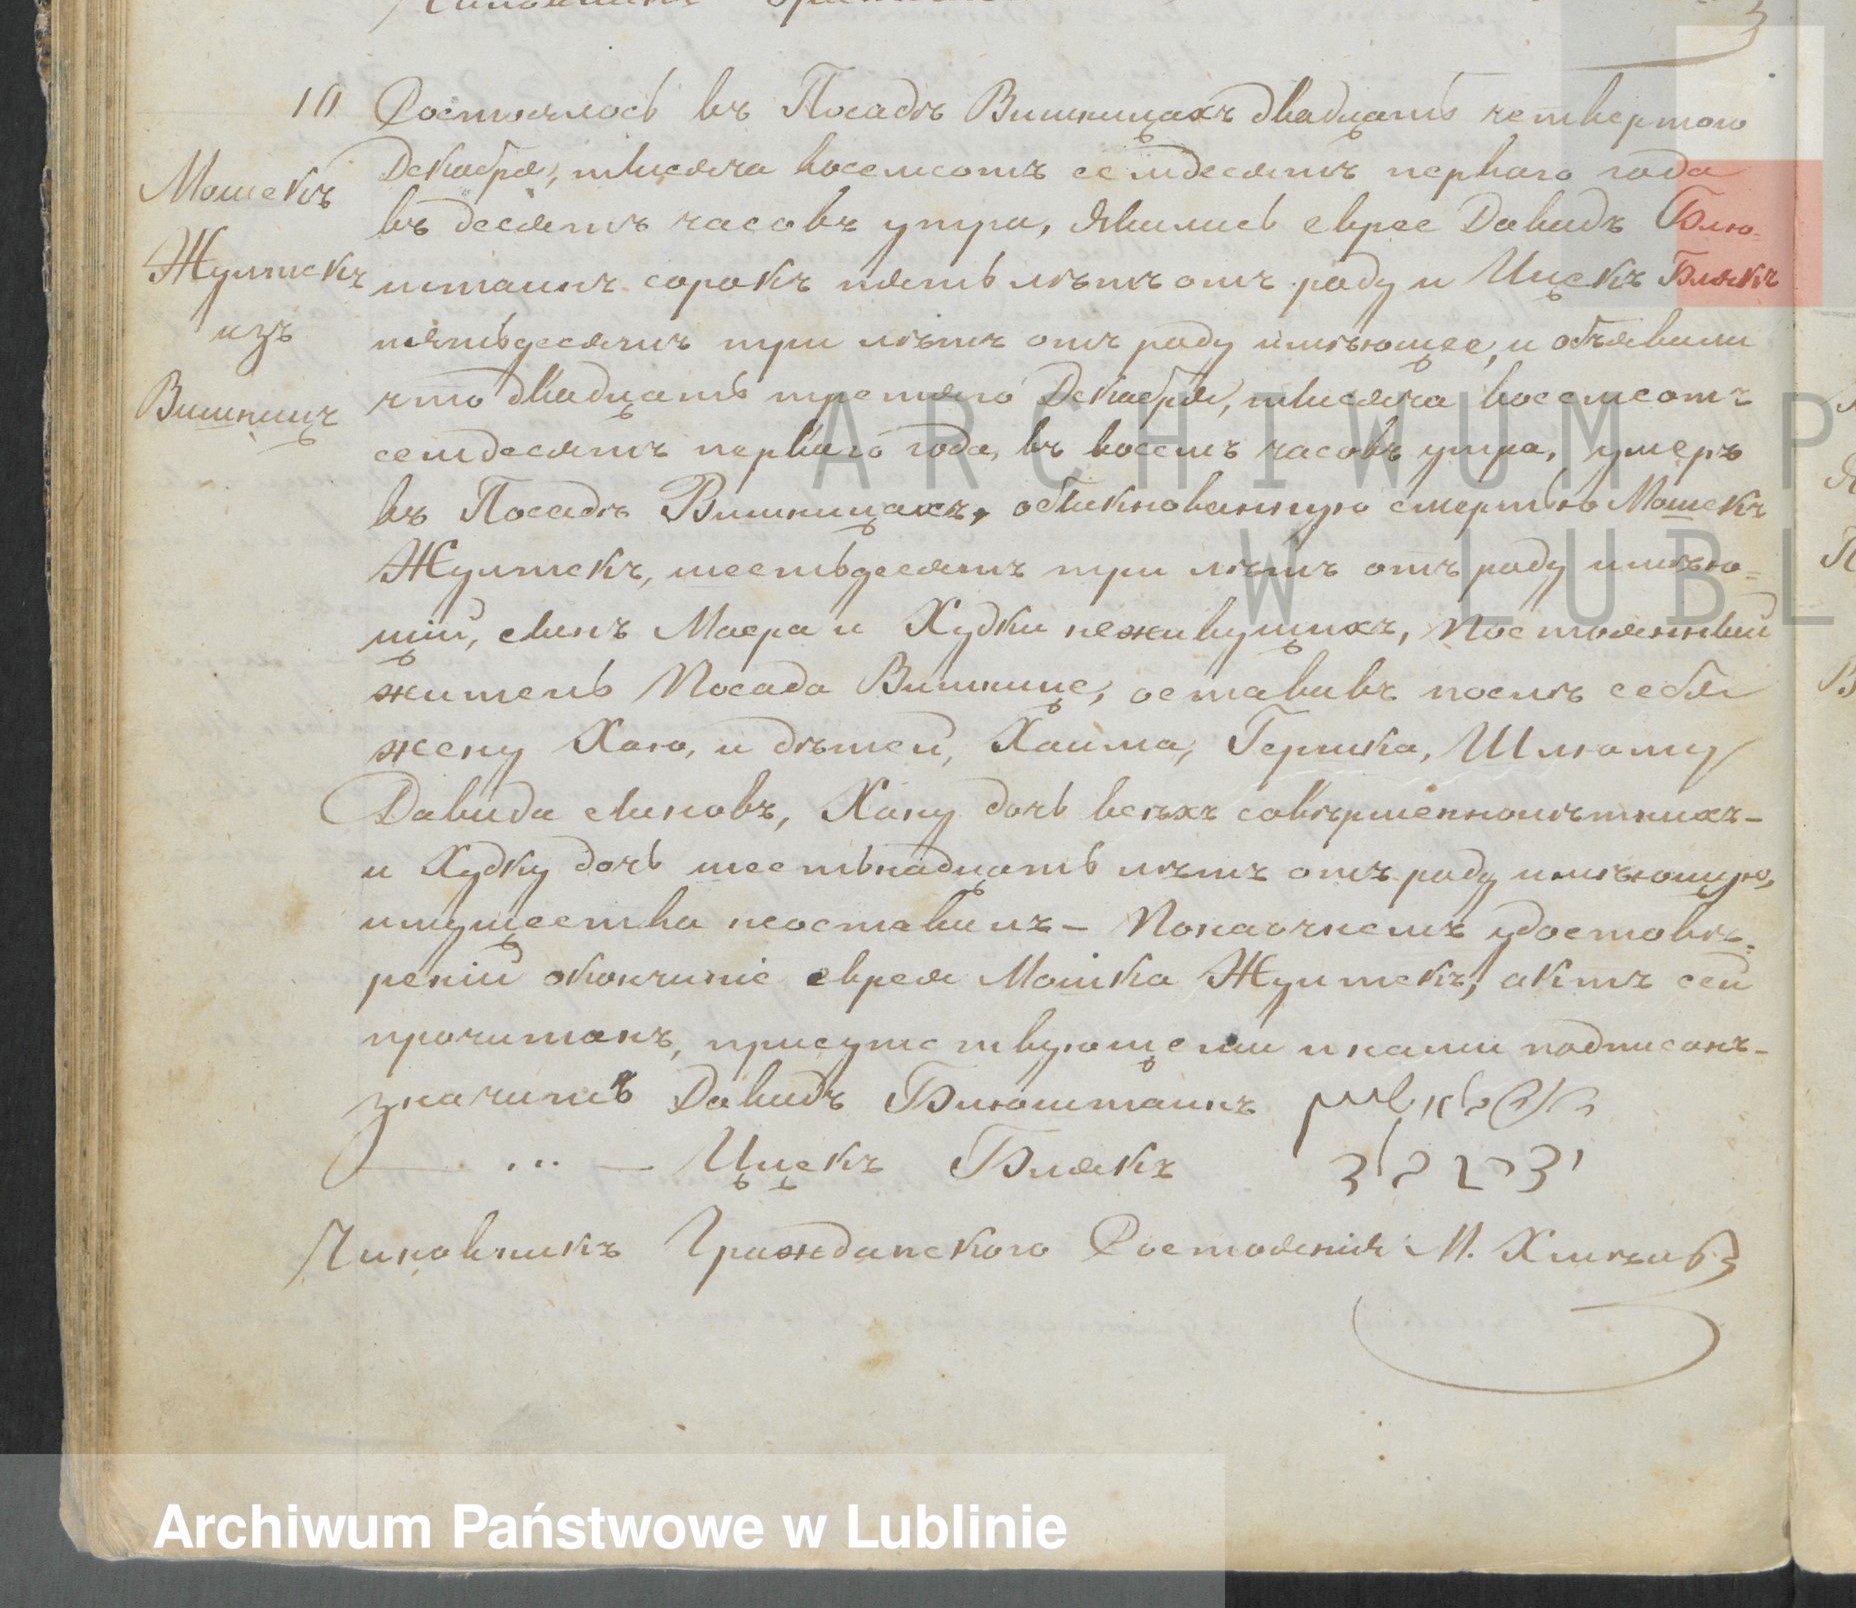 10 Состоялось въ Посадѣ Вишницахъ двадцать четвертого
Декабря, тысяча восемсотъ семдесятъ первого года
въ десять часовъ утра, явились еврее Давидъ Блю-
штаинъ сорокъ пять лѣтъ отъ роду и Ицекъ Блякъ
пятьдесятъ три лѣтъ отъ роду имѣющее, и объявили
что двадцать третяго Декабря, тысяча восемсотъ
семдесятъ первого года, въ восемъ часовъ утра, умеръ
въ Посадѣ Вишницахъ, обыкнованную смертью Мошекъ
Жултекъ, шестьдесятъ три лѣтъ отъ роду имѣю-
щій, сынъ Маера и Худки неживущихъ, постоянный
житель Посада Вишнице, оставивъ послѣ себя
жену Хаю, и дѣтей, Хаима, Гершка, Шлюму
Давида сыновъ, Хану дочь всѣхъ совѣршеннолѣтнихъ -
и Худку дочь шестьнадцать лѣтъ отъ роду имѣющую,
имущества неоставилъ - По удостовѣ-
реніи окончиніе еврея Мошка Жултекъ, актъ сей
прочитанъ, присутствующеми и нами подписанъ -
значитъ Давидъ Блюштаинъ
— ... — Ицекъ Блякъ
Чиновникъ Гражданского Состоянія М.
Мошекъ
Жултекъ
изъ
Вишницъ
ARCHIWUM P
W LUBL
Archiwum Państwowe w Lublinie